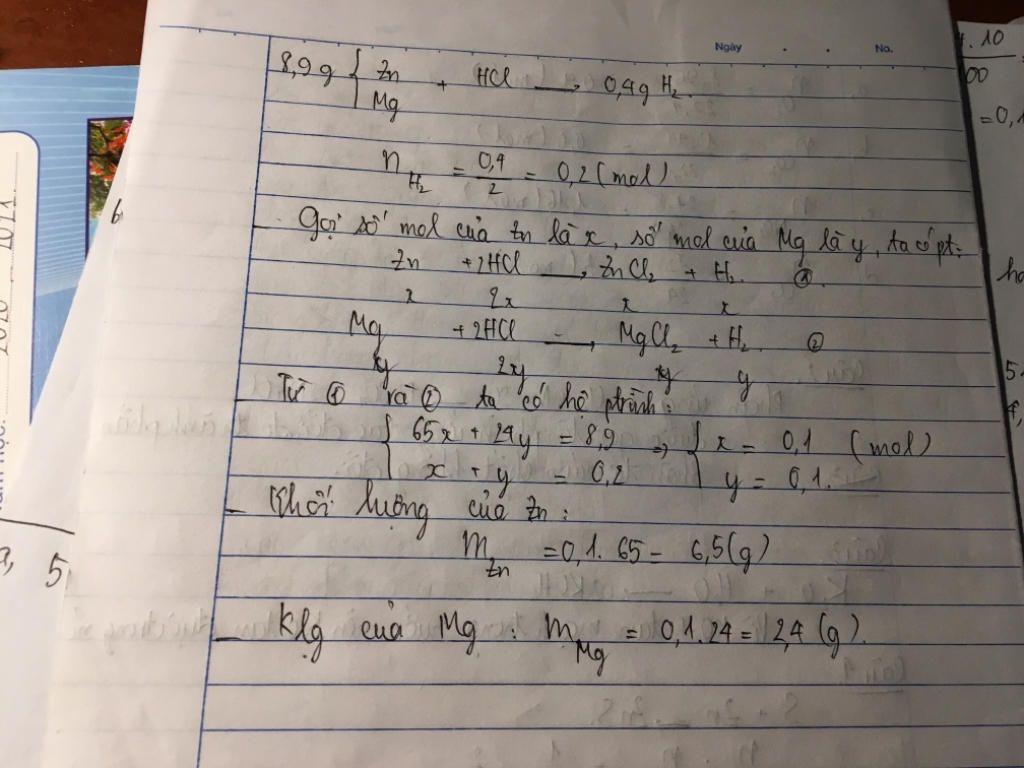 Ngày . . No.
8,9g { Zn + HCl → 0,4g H₂.
Mg
n H₂ = 0,4/2 = 0,2 (mol)
- Gọi số mol của Zn là x, số mol của Mg là y, ta có pt:
Zn + 2HCl → ZnCl₂ + H₂. ①.
x 2x x x
Mg + 2HCl → MgCl₂ + H₂. ②
y 2y y y
Từ ① và ② ta có hệ ptrình:
{ 65x + 24y = 8,9 ⇒ { x = 0,1 (mol)
x + y = 0,2 y = 0,1.
- Khối lượng của Zn:
m Zn = 0,1 . 65 = 6,5 (g)
- Klg của Mg : m Mg = 0,1 . 24 = 2,4 (g).
5